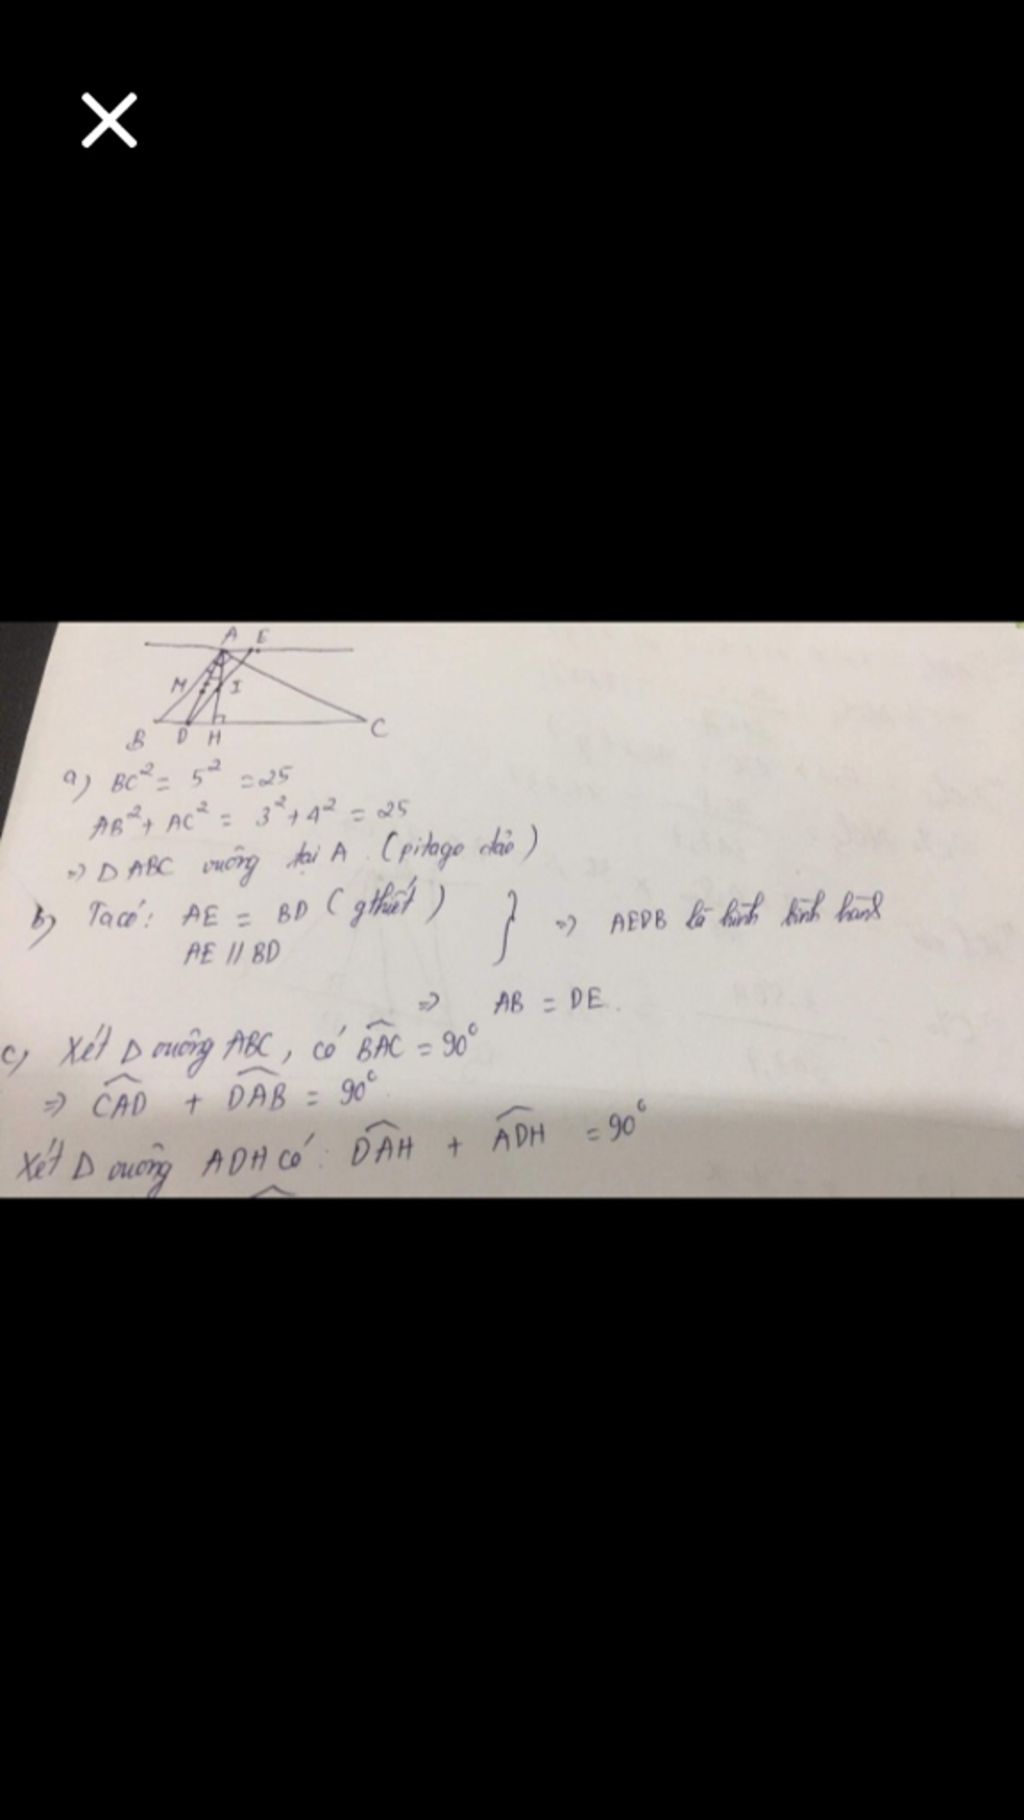 A E
M I
B D H C
a) BC² = 5² = 25
AB² + AC² = 3² + 4² = 25
=> Δ ABC vuông tại A (pitago đảo)
b) Ta có: AE = BD (gthiết) } => AEDB là hình bình hành
AE // BD
=> AB = DE.
c) Xét Δ vuông ABC, có BAC = 90°
=> CAD + DAB = 90°
Xét Δ vuông ADH có: DAH + ADH = 90°